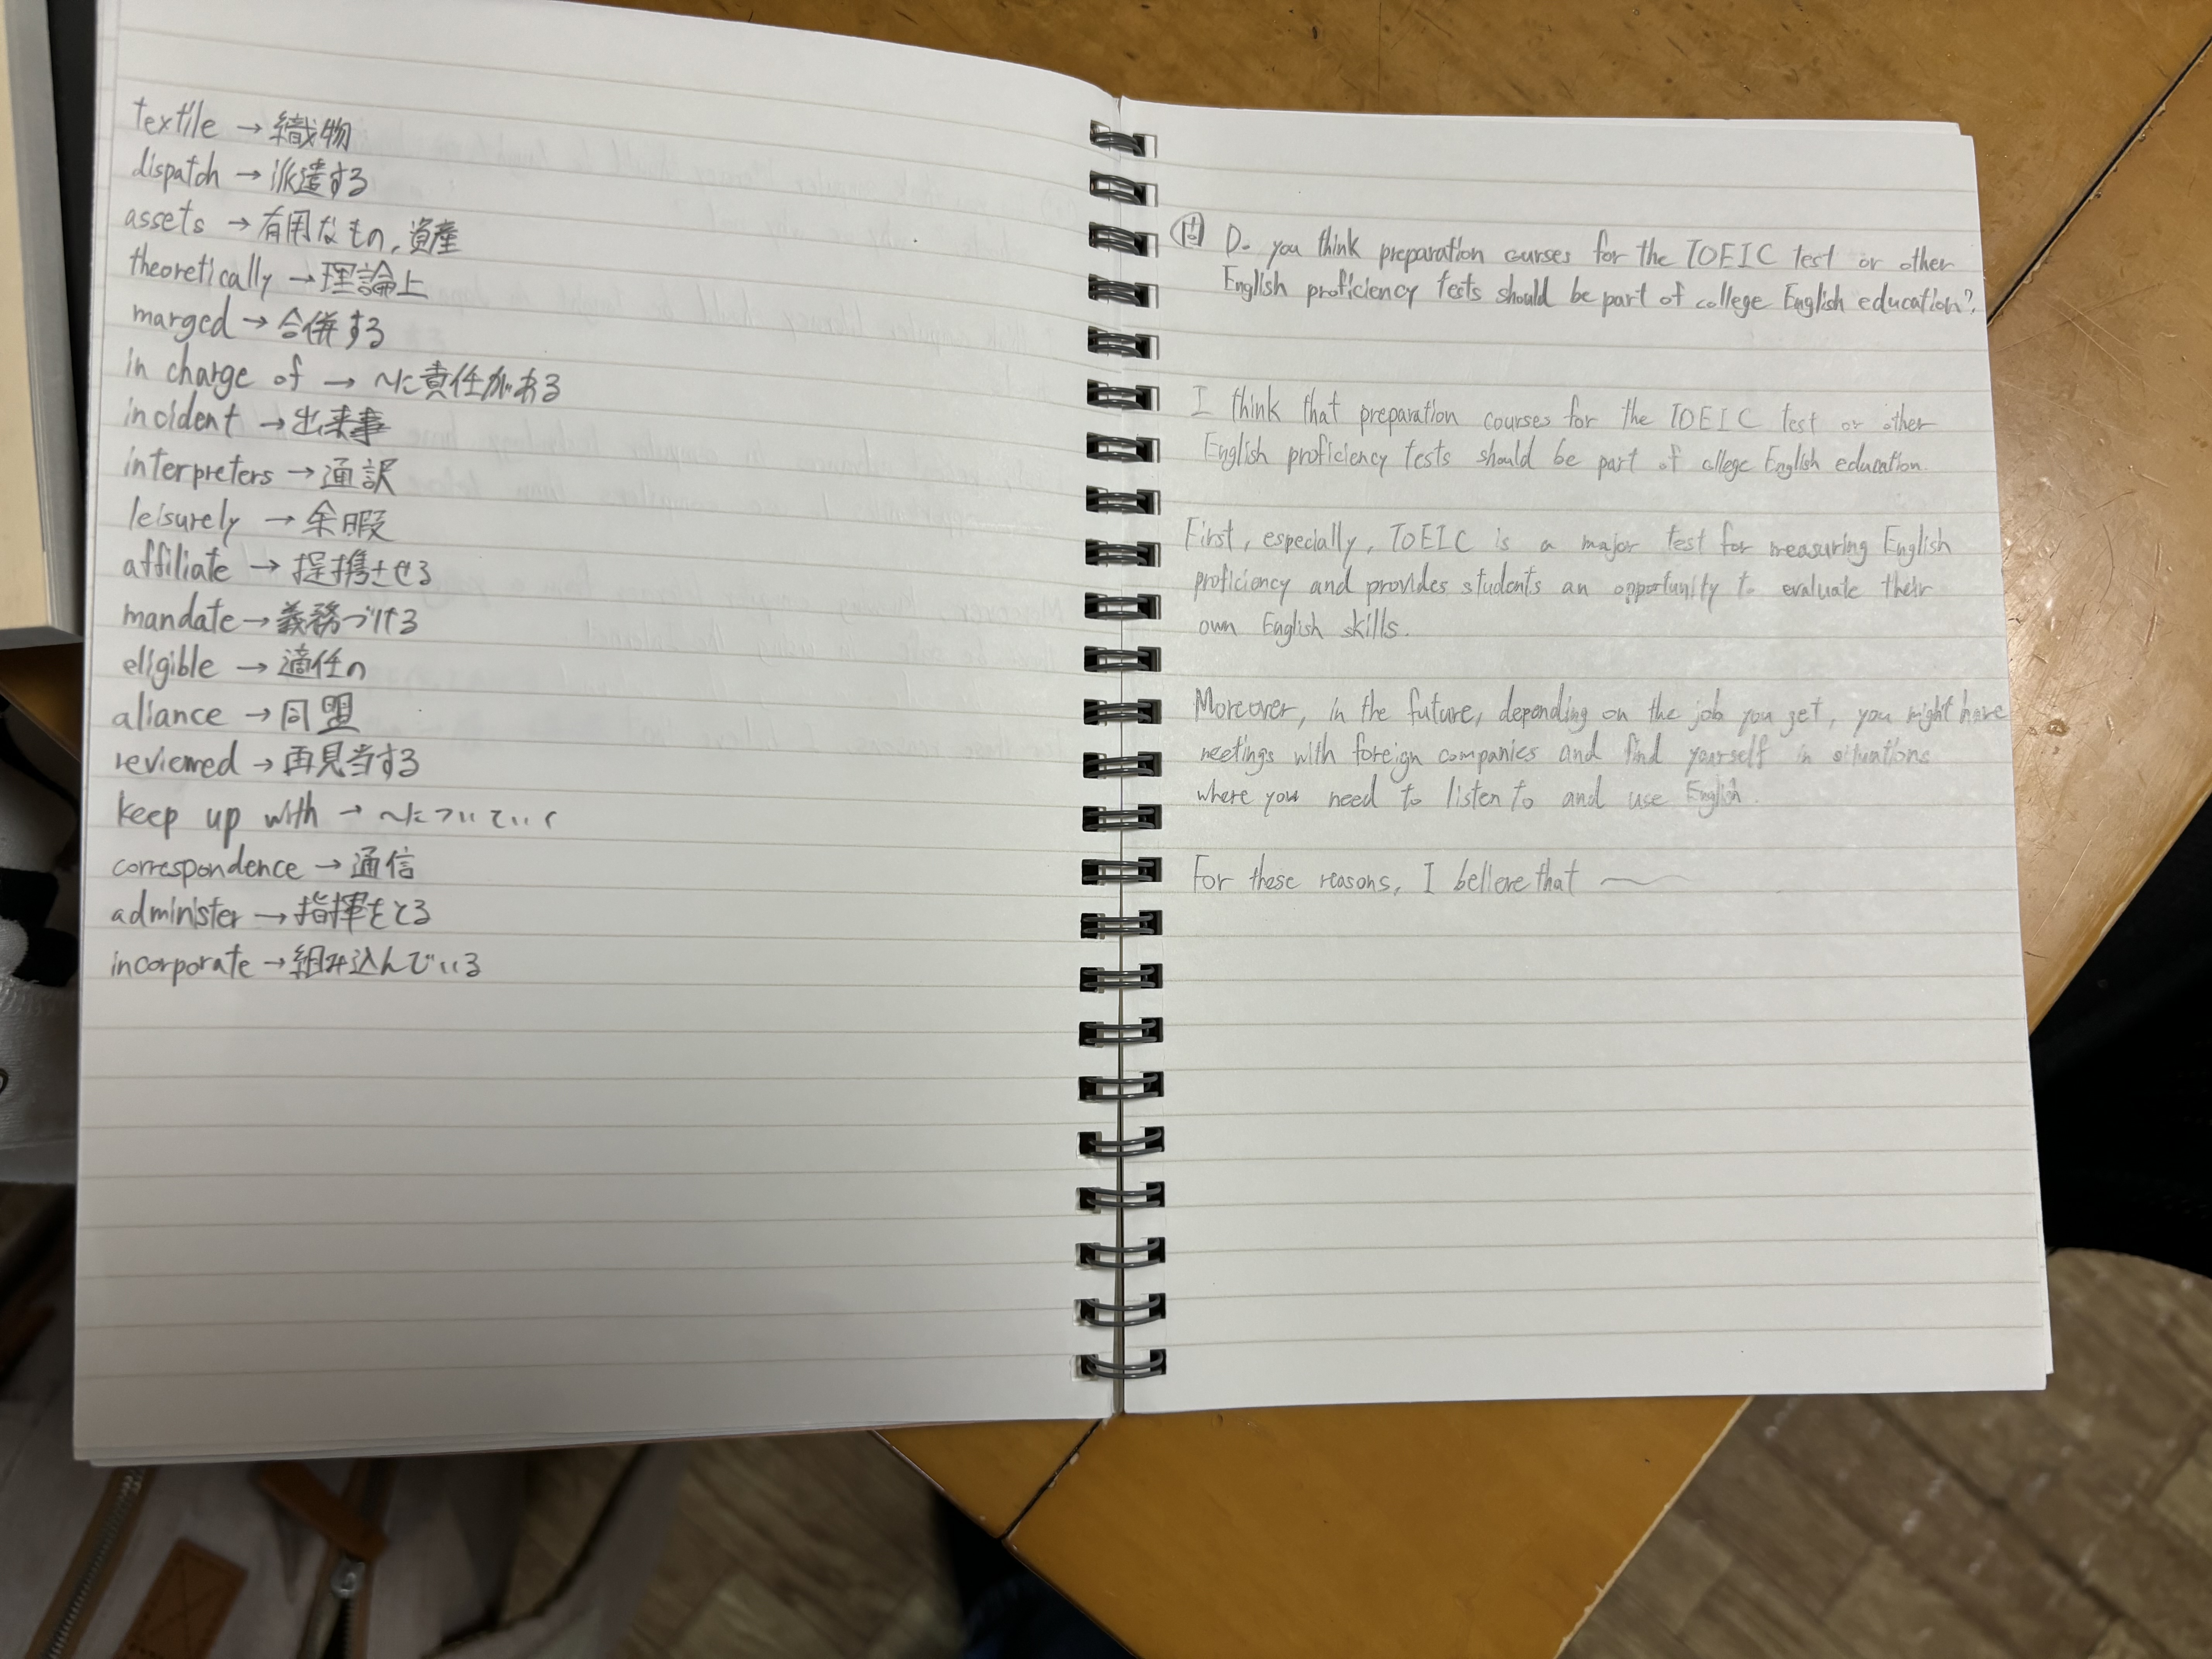 textile → 織物
dispatch → 派遣する
assets → 有用なもの, 資産
theoretically → 理論上
marged → 合併する
in charge of → ~に責任がある
incident → 出来事
interpreters → 通訳
leisurely → 余暇
affiliate → 提携させる
mandate → 義務づける
eligible → 適任の
aliance → 同盟
reviewed → 再見当する
keep up with → ~について いく
correspondence → 通信
administer → 指揮をとる
incorporate → 組み込んでいる
Do you think preparation courses for the TOEIC test or other
English proficiency tests should be part of college English education?
I think that preparation courses for the TOEIC test or other
English proficiency tests should be part of college English education.
First, especially, TOEIC is a major test for measuring English
proficiency and provides students an opportunity to evaluate their
own English skills.
Moreover, in the future, depending on the job you get, you might have
meetings with foreign companies and find yourself in situations
where you need to listen to and use English.
For these reasons, I believe that ~